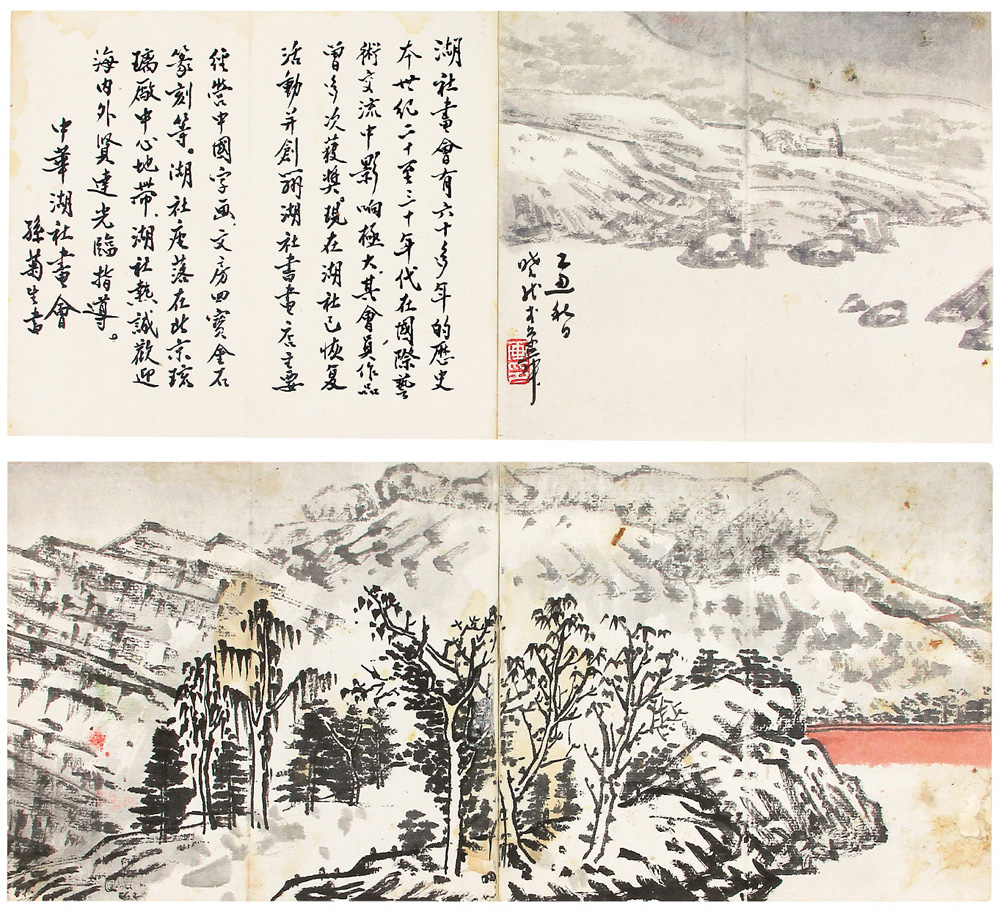 湖社畫會有六十多年的歷史
本世紀二十至三十年代在國際藝
術交流中影响極大其會員作品
曾多次獲獎現在湖社已恢复
活動并創辦湖社書畫店主要
经营中國字画、文房四寶金石
篆刻等。湖社座落在北京琉
璃廠中心地带、湖社热誠歡迎
海内外賢達光臨指導。
中華湖社畫會
孫菊生書
乙丑秋日